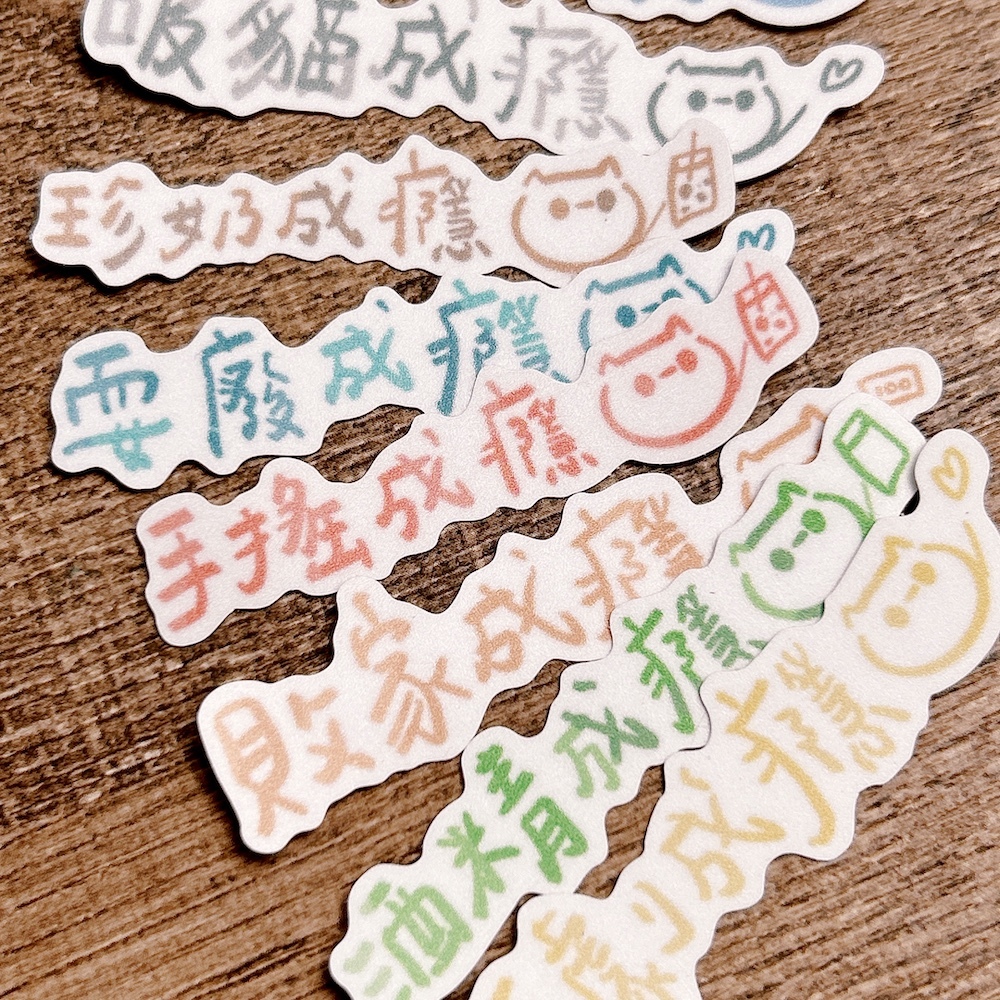 吸貓成癮
珍奶成癮
耍廢成癮
手搖成癮
敗家成癮
酒精成癮
成癮